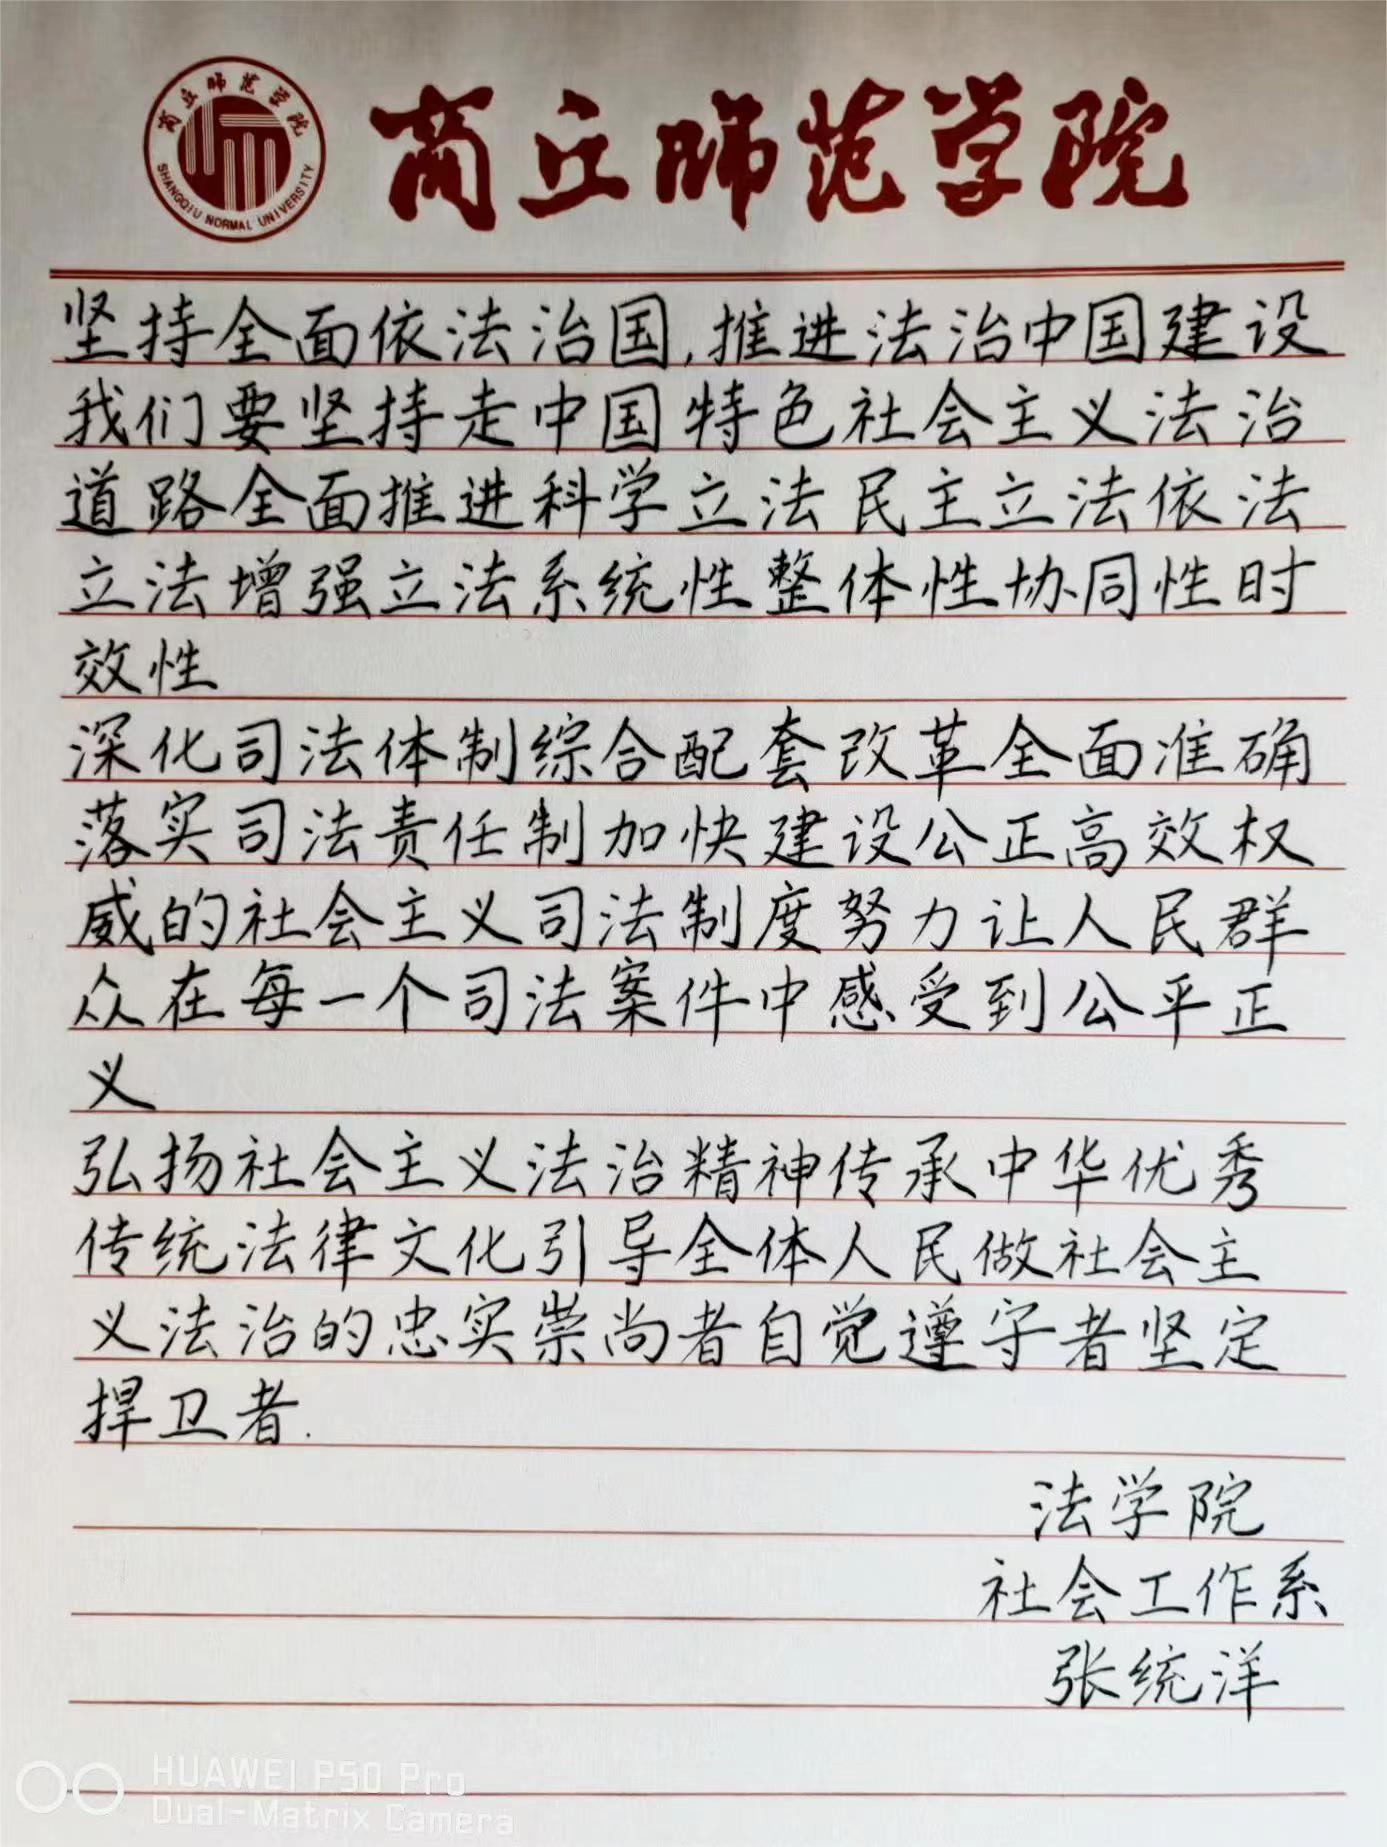 商丘师范学院
SHANGQIU NORMAL UNIVERSITY
商丘师范学院
坚持全面依法治国,推进法治中国建设
我们要坚持走中国特色社会主义法治
道路全面推进科学立法民主立法依法
立法增强立法系统性整体性协同性时
效性
深化司法体制综合配套改革全面准确
落实司法责任制加快建设公正高效权
威的社会主义司法制度努力让人民群
众在每一个司法案件中感受到公平正
义
弘扬社会主义法治精神传承中华优秀
传统法律文化引导全体人民做社会主
义法治的忠实崇尚者自觉遵守者坚定
捍卫者.
法学院
社会工作系
张统洋
HUAWEI P50 Pro
Dual-Matrix Camera